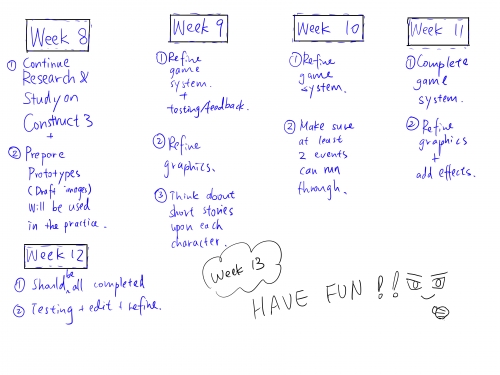 Week 8
① Continue
Research &
Study on
Construct 3
+
② Prepare
Prototypes
(Draft images)
Will be used
in the practice.
Week 9
① Refine
game
system.
+
testing/feedback.
② Refine
graphics.
③ Think about
short stories
upon each
character.
Week 10
① Refine
game
system.
② Make sure
at least
2 events
can run
through.
Week 11
① Complete
game
system.
② Refine
graphics
+
add effects.
Week 12
① Should be all completed
② Testing + edit + refine.
Week 13
HAVE FUN !!